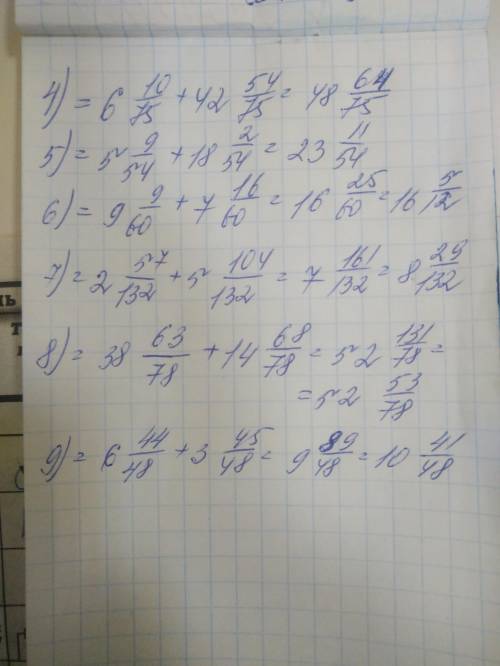 4) = 6 10/75 + 42 54/75 = 48 64/75
5) = 5 9/54 + 18 2/54 = 23 11/54
6) = 9 9/60 + 7 16/60 = 16 25/60 = 16 5/12
7) = 2 57/132 + 5 104/132 = 7 161/132 = 8 29/132
8) = 38 63/78 + 14 68/78 = 52 131/78 =
= 52 53/78
9) = 6 44/48 + 3 45/48 = 9 89/48 = 10 41/48